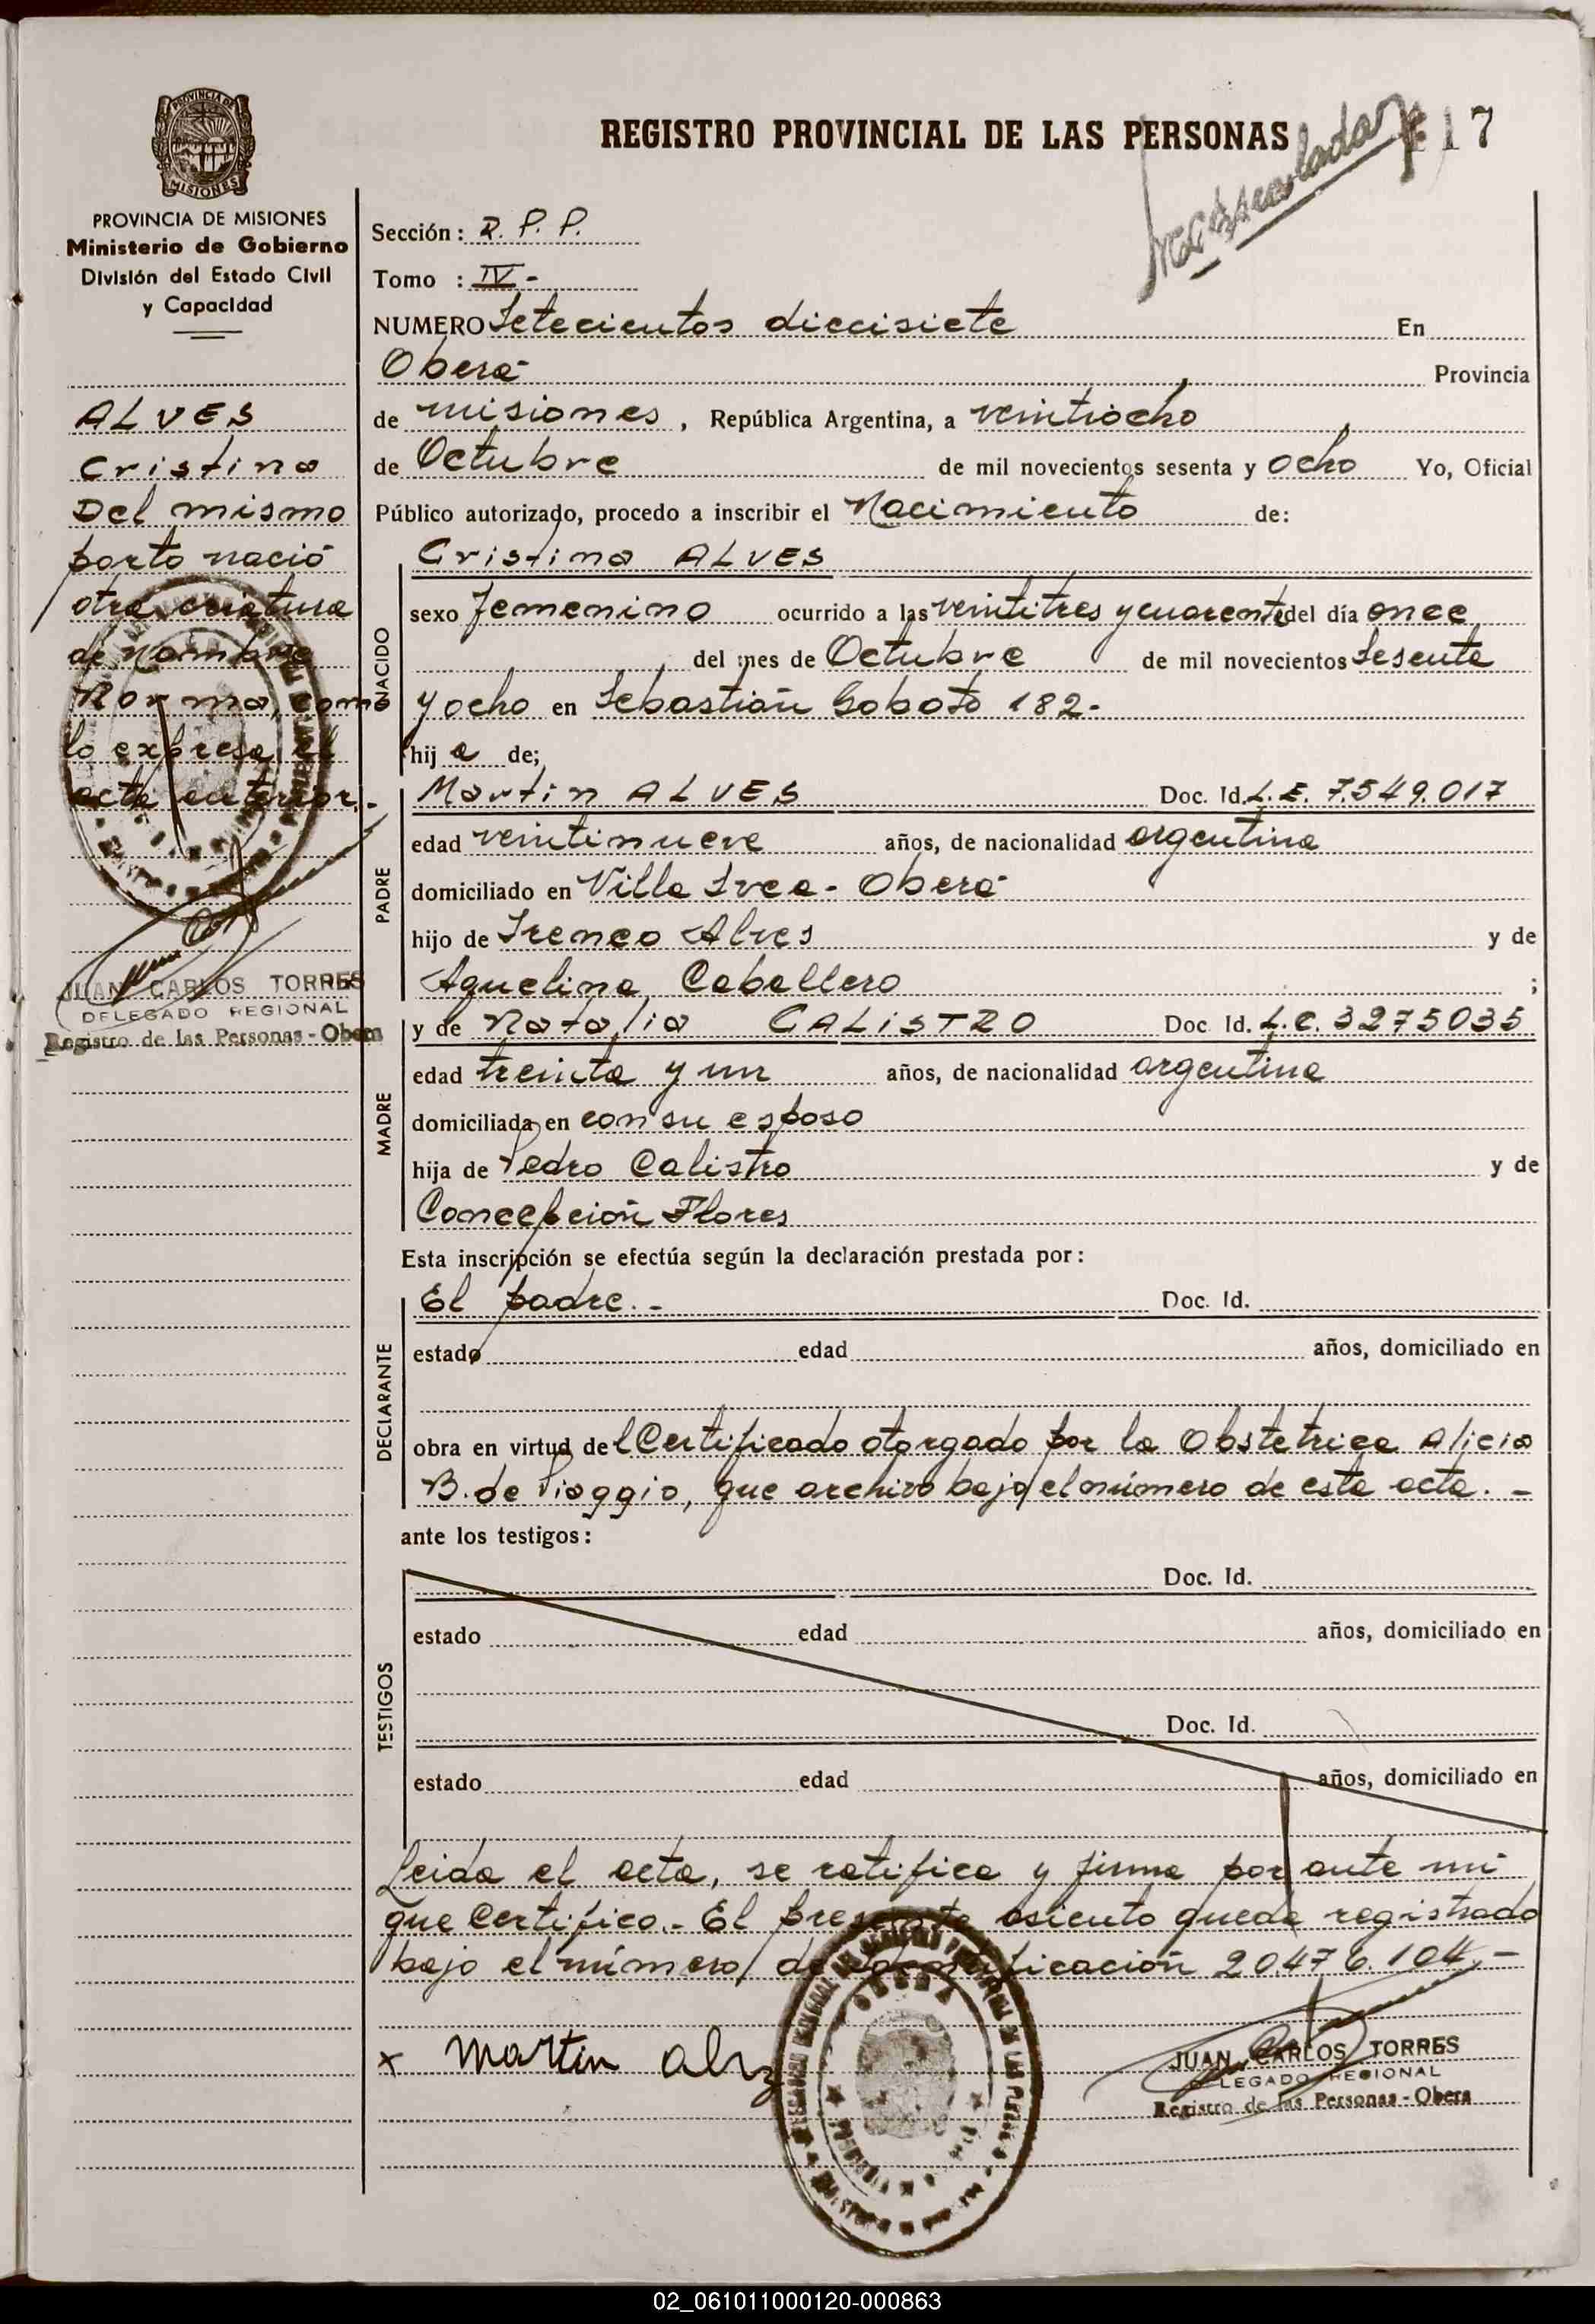 REGISTRO PROVINCIAL DE LAS PERSONAS
17
PROVINCIA DE MISIONES
Ministerio de Gobierno
División del Estado Civil
y Capacidad
ALVES
Cristina
Del mismo
parto nació
otra criatura
de nombre
Norma, como
lo expresa el
acta anterior.-
JUAN CARLOS TORRES
DELEGADO REGIONAL
Registro de las Personas - Obera
Sección: R. P. P.
Tomo : IV -
NUMERO Setecientos diecisiete En
Oberá Provincia
de misiones, República Argentina, a veintiocho
de Octubre de mil novecientos sesenta y ocho Yo, Oficial
Público autorizado, procedo a inscribir el Nacimiento de:
NACIDO
Cristina ALVES
sexo femenino ocurrido a las veintitres y cuarenta del día once
del mes de Octubre de mil novecientos sesenta
y ocho en Sebastián Gaboto 182.
hij a de;
PADRE
Martin ALVES Doc. Id. L.E. 7.549.017
edad veintinueve años, de nacionalidad argentina
domiciliado en Villa Svea - Oberá
hijo de Ireneo Alves y de
Aquelina Caballero ;
MADRE
y de Natalia CALISTRO Doc. Id. L.C. 3275035
edad treinta y un años, de nacionalidad argentina
domiciliada en con su esposo
hija de Pedro Calistro y de
Concepción Flores
Esta inscripción se efectúa según la declaración prestada por:
DECLARANTE
El padre.- Doc. Id.
estado edad años, domiciliado en
obra en virtud del Certificado otorgado por la Obstetrica Alicia
B. de Piaggio, que archivo bajo el número de esta acta. -
ante los testigos:
TESTIGOS
Doc. Id.
estado edad años, domiciliado en
Doc. Id.
estado edad años, domiciliado en
Leida el acta, se ratifica y firma por ante mi
que Certifico.- El presente asiento queda registrado
bajo el número de identificación 20.476.104,-
x Martin Alvez
OBERA
JUAN CARLOS TORRES
DELEGADO REGIONAL
Registro de las Personas - Obera
02_061011000120-000863